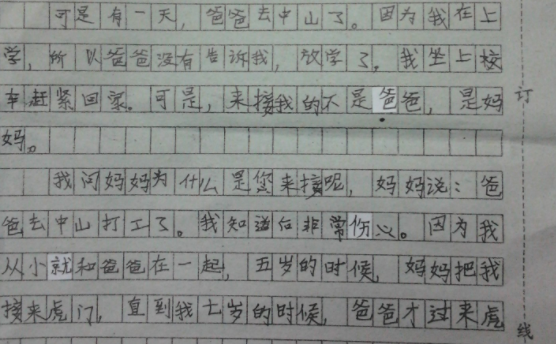 可是有一天，爸爸去中山了。因为我在上
学，所以爸爸没有告诉我，放学了，我坐上校
车赶紧回家。可是，来接我的不是爸爸，是妈
妈。
我问妈妈为什么是您来接呢，妈妈说：爸
爸去中山打工了。我知道后非常伤心。因为我
从小就和爸爸在一起，五岁的时候，妈妈把我
接来虎门，直到我七岁的时候，爸爸才过来虎
订
线